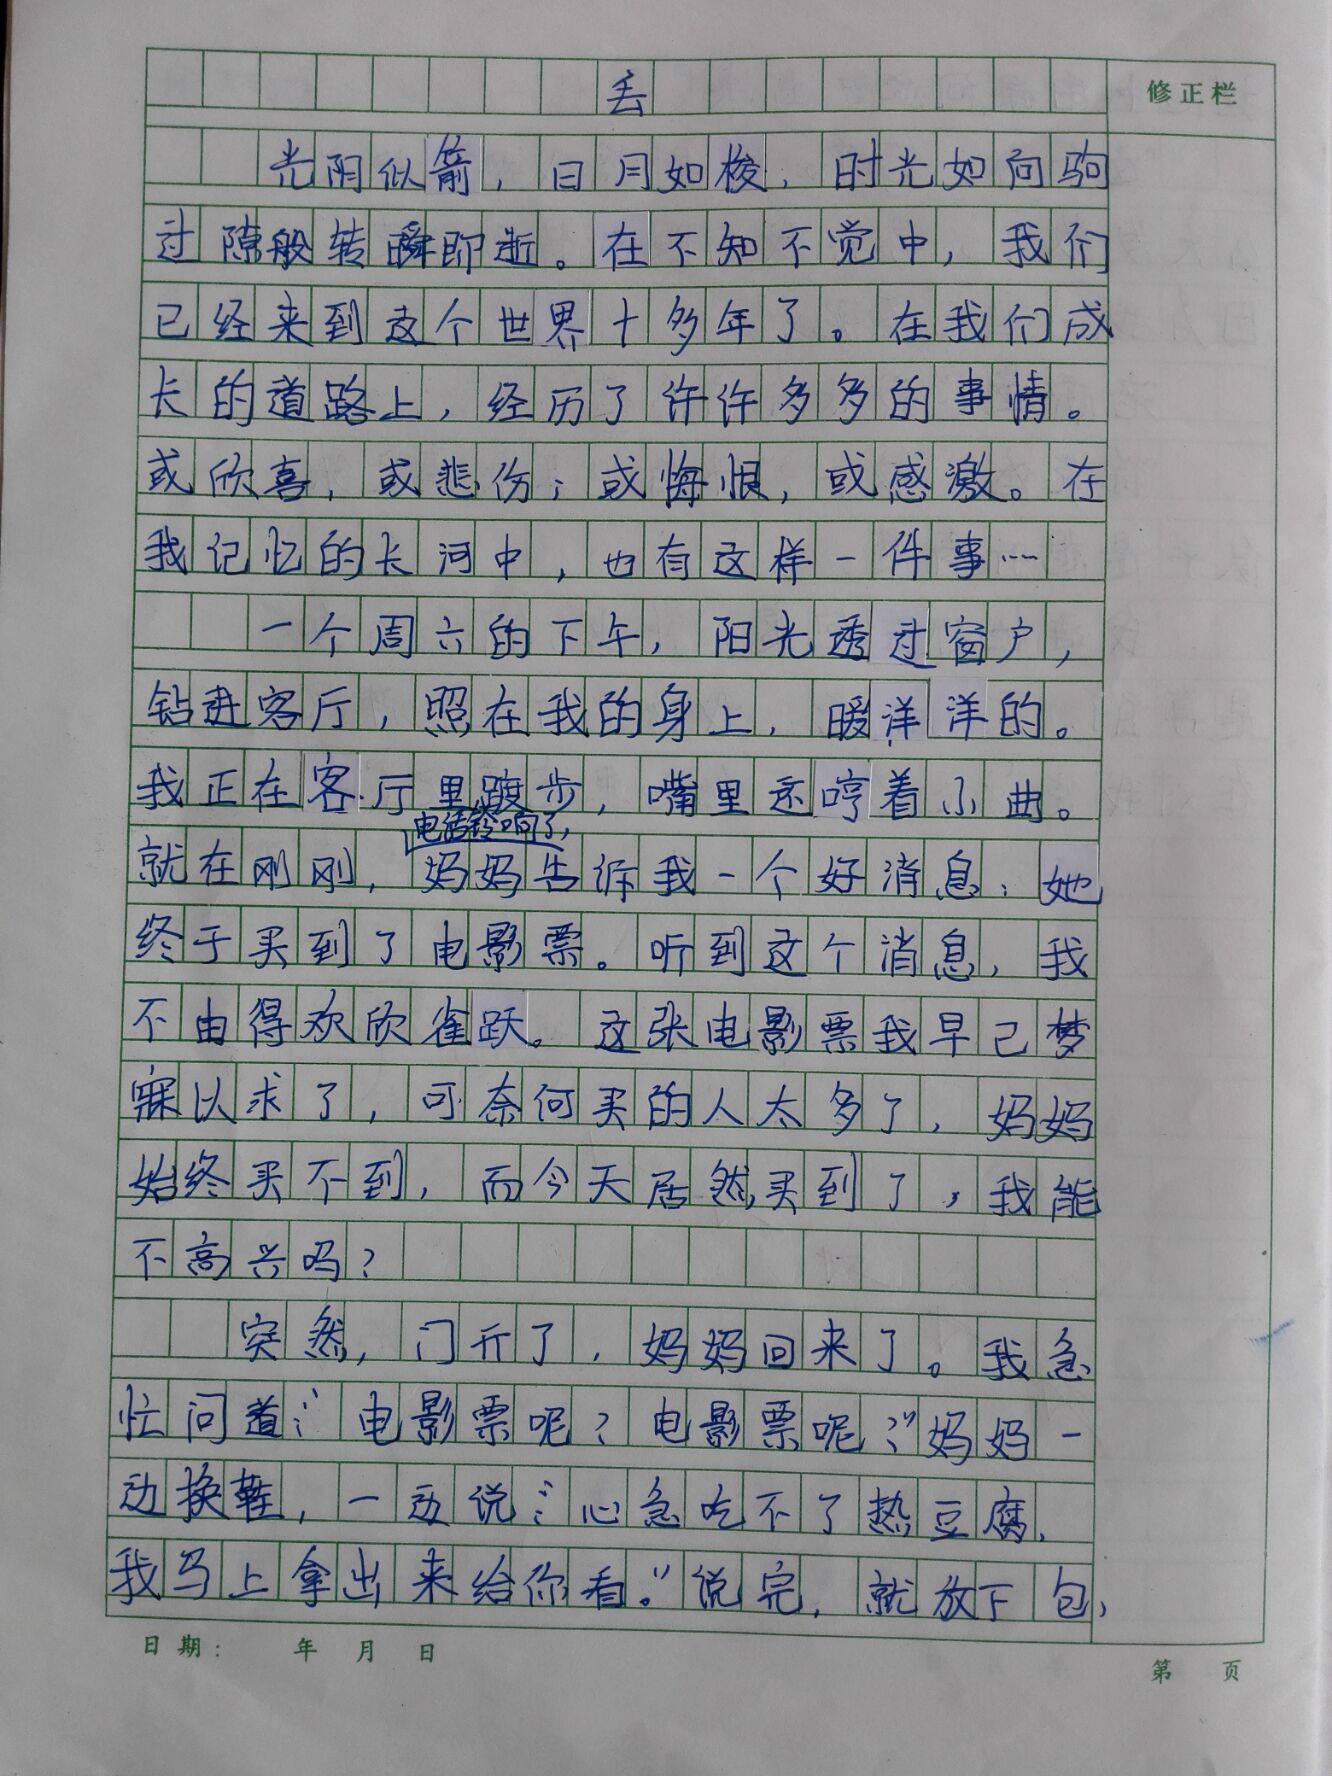 丢
修正栏
光阴似箭，日月如梭，时光如向驹
过隙般转瞬即逝。在不知不觉中，我们
已经来到这个世界十多年了。在我们成
长的道路上，经历了许许多多的事情。
或欣喜，或悲伤；或悔恨，或感激。在
我记忆的长河中，也有这样一件事…
一个周六的下午，阳光透过窗户，
钻进客厅，照在我的身上，暖洋洋的。
我正在客厅里踱步，嘴里还哼着小曲。
电话铃响了，
就在刚刚，妈妈告诉我一个好消息：她
终于买到了电影票。听到这个消息，我
不由得欢欣雀跃。这张电影票我早已梦
寐以求了，可奈何买的人太多了，妈妈
始终买不到，而今天居然买到了，我能
不高兴吗？
突然，门开了，妈妈回来了。我急
忙问道：“电影票呢？电影票呢？”妈妈一
边换鞋，一边说：“心急吃不了热豆腐，
我马上拿出来给你看。”说完，就放下包，
日期： 年 月 日
第 页